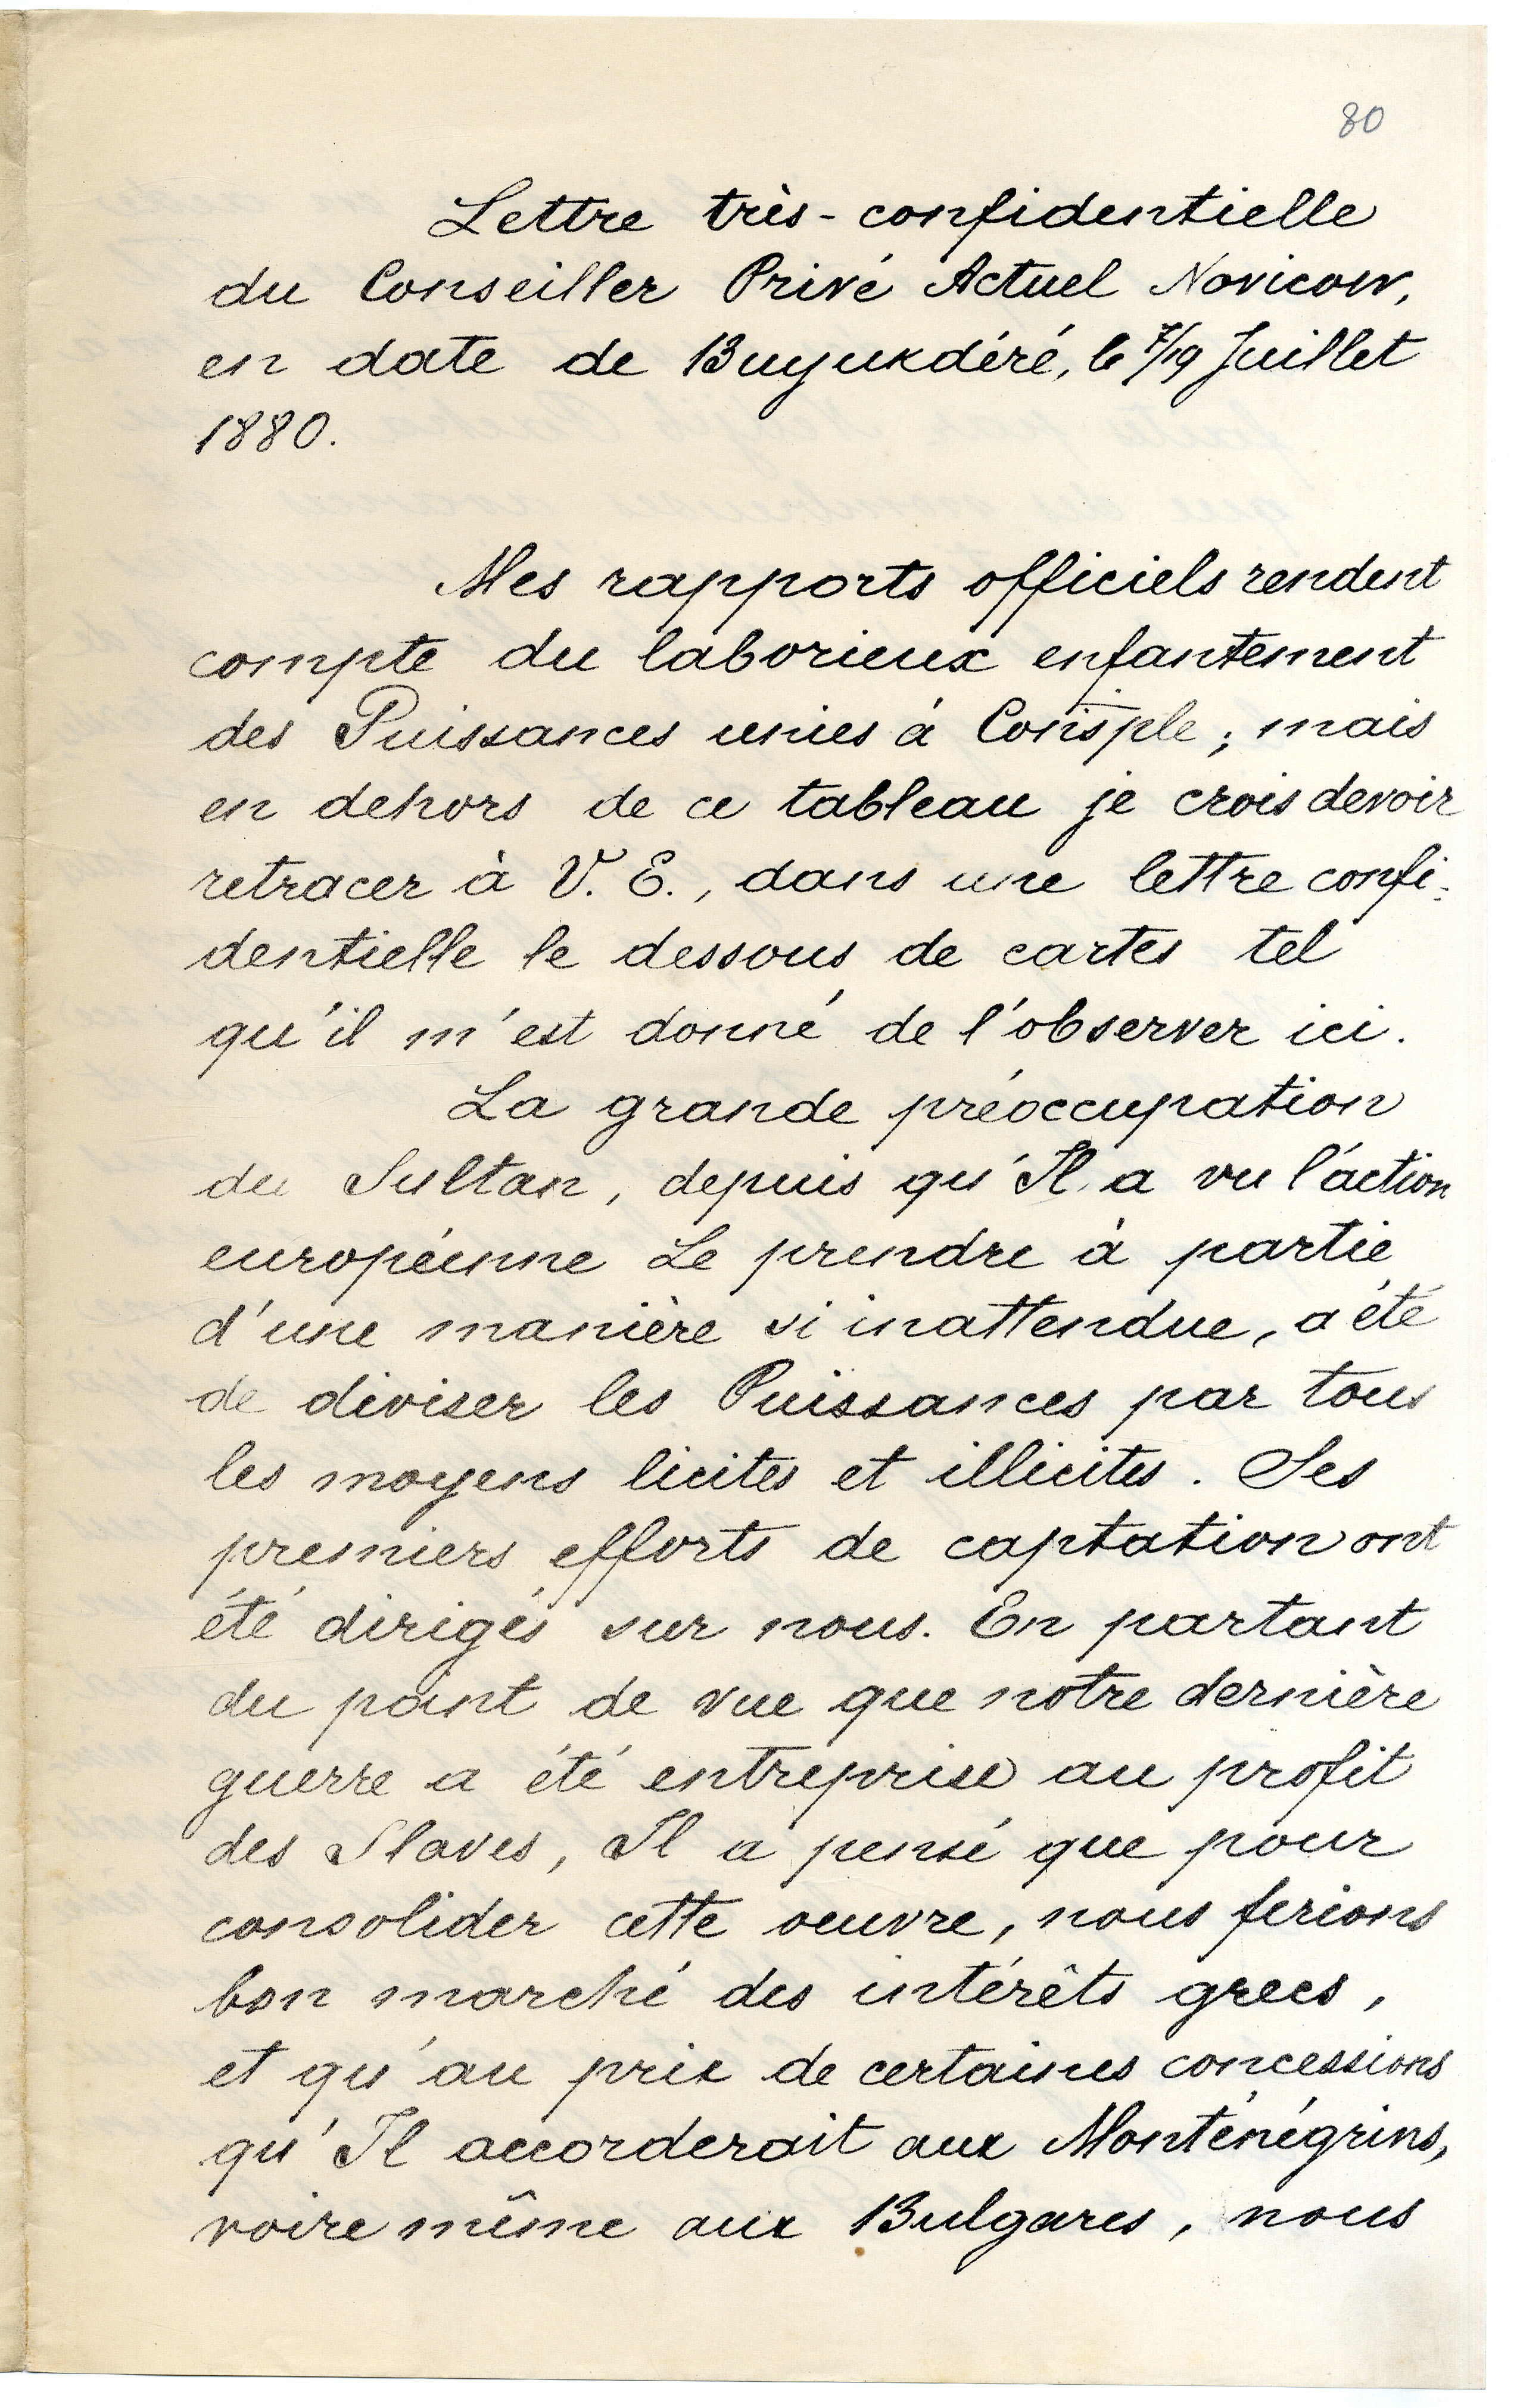 80
Lettre très-confidentielle
du Conseiller Privé Actuel Novicow,
en date de Buyukdéré, le 7/19 Juillet
1880.
Mes rapports officiels rendent
compte du laborieux enfantement
des Puissances unies à Consple; mais
en dehors de ce tableau je crois devoir
retracer à V. E., dans une lettre confi-
dentielle le dessous de cartes tel
qu'il m'est donné de l'observer ici.
La grande préoccupation
du Sultan, depuis qu'Il a vu l'action
européenne Le prendre à partie
d'une manière si inattendue, a été
de diviser les Puissances par tous
les moyens licites et illicites. Ses
premiers efforts de captation ont
été dirigés sur nous. En partant
du point de vue que notre dernière
guerre a été entreprise au profit
des Slaves, Il a pensé que pour
consolider cette oeuvre, nous ferions
bon marché des intérêts grecs,
et qu'au prix de certaines concessions
qu'Il accorderait aux Monténégrins,
voire même aux Bulgares, nous